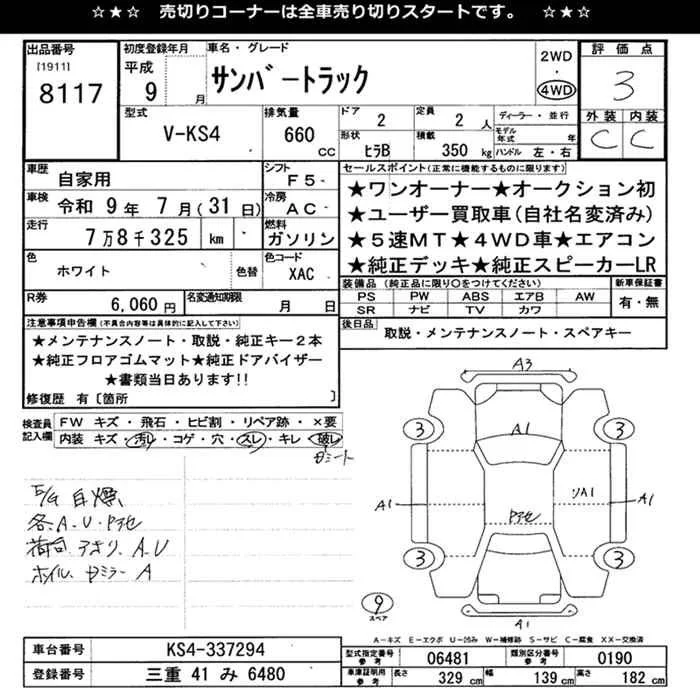 ☆★☆ 売切りコーナーは全車売り切りスタートです。 ☆★☆
出品番号
[1911]
8117
初度登録年月
平成
9 月
車名・グレード
サンバートラック
2WD
・
4WD
評価点
3
型式
V-KS4
排気量
660 CC
ドア
2
形状
ヒラB
定員
2 人
積載
350 kg
ディーラー・並行
モデル年式 年
ハンドル 左・右
外装 内装
C C
車歴
自家用
シフト
F5
車検
令和 9 年 7 月 (31 日)
冷房
AC
走行
7万8千325 km
燃料
ガソリン
色
ホワイト
色替
色コード
XAC
R券
6,060 円
名変通知期限
月 日
セールスポイント(正常に機能するものに限ります)
★ワンオーナー★オークション初
★ユーザー買取車(自社名変済み)
★5速MT★4WD車★エアコン
★純正デッキ★純正スピーカーLR
装備品(純正品に限り○をつけてください)
PS PW ABS エアB AW
SR ナビ TV カワ
新車保証書
有・無
後日品
取説・メンテナンスノート・スペアキー
注意事項申告欄(不具合内容等は具体的に記入して下さい)
★メンテナンスノート・取説・純正キー2本
★純正フロアゴムマット★純正ドアバイザー
★書類当日あります!!
修復歴 有〔箇所 〕
検査員記入欄
FW キズ・飛石・ヒビ割・リペア跡・×要
内装 キズ・汚レ・コゲ・穴・スレ・キレ・破レ
シート
各A.U.
A.U
ホイル A
A3
A1
3
3
A1
リA1
A1
3
3
A1
9
スペア
A-キズ E-エクボ U-凹み W-補修跡 S-サビ C-腐食 XX-交換済
車台番号
KS4-337294
登録番号
三重 41 み 6480
型式指定番号
参考
06481
類別区分番号
参考
0190
車庫証明用
参考
長さ 329 cm
幅 139 cm
高さ 182 cm